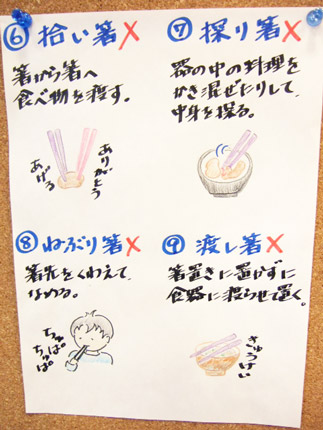 ⑥ 拾い箸 ×
箸から箸へ
食べ物を渡す。
あげる
ありがとう
⑦ 探り箸 ×
器の中の料理を
かき混ぜたりして、
中身を探る。
⑧ ねぶり箸 ×
箸先をくわえて、
なめる。
ちゅぱ
ちゅぱ。
⑨ 渡し箸 ×
箸置きに置かずに
食器に渡らせて置く。
きゅうけい